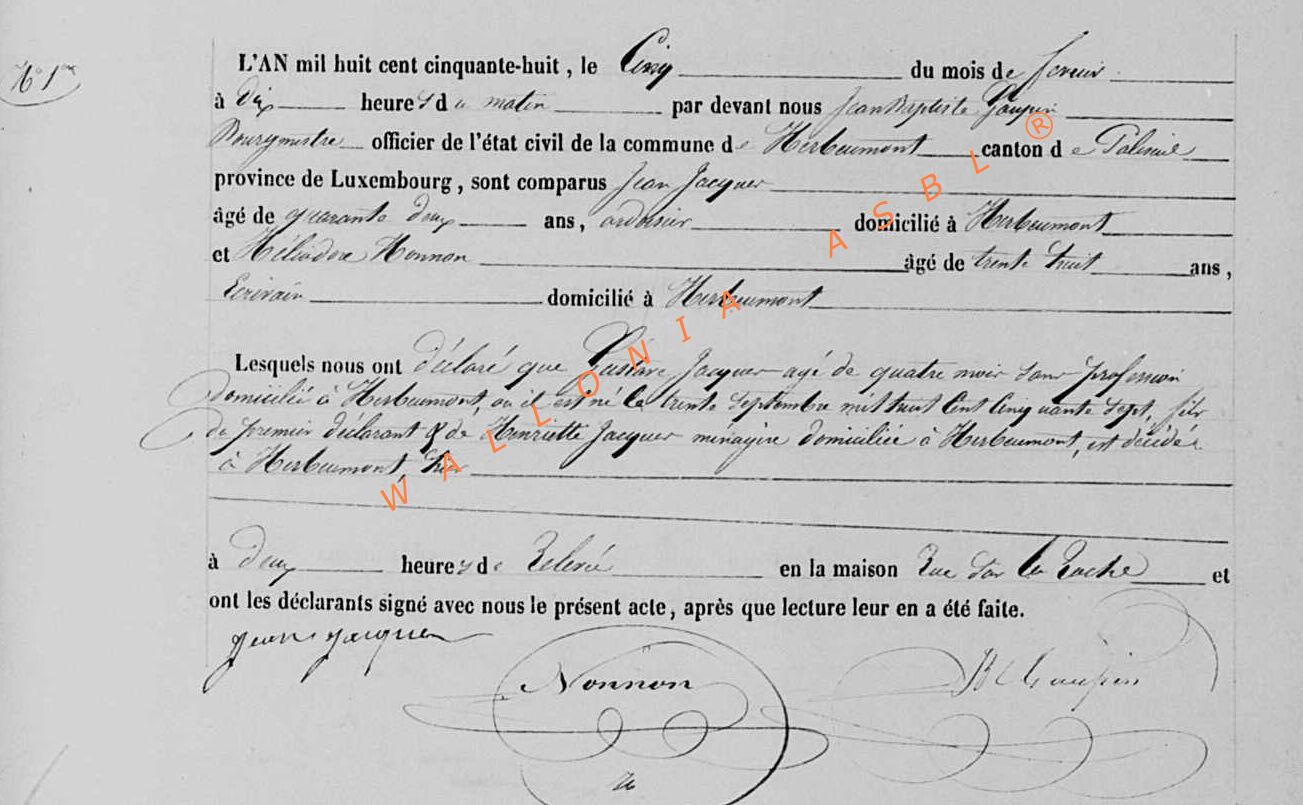 N° 1
L'AN mil huit cent cinquante-huit, le Cinq du mois de fevrier
à Dix heures du matin par devant nous Jean Baptiste
Bourgmestre officier de l'état civil de la commune de Herbeumont canton de Paliseul
province de Luxembourg, sont comparus Jean Jacques
âgé de quarante deux ans, ardoisier domicilié à Herbeumont
et Héliodore Nonnon âgé de trente huit ans,
Ecrivain domicilié à Herbeumont
Lesquels nous ont déclaré que Gustave Jacques agé de quatre mois sans profession
domicilié à Herbeumont, où il est né le trente Septembre mil huit Cent Cinquante Sept, fils
du premier déclarant & de Henriette Jacques ménagère domiciliée à Herbeumont, est décédé
à Herbeumont, hier
à Deux heures de Relevée en la maison Rue sur la Roche et
ont les déclarants signé avec nous le présent acte, après que lecture leur en a été faite.
Jean Jacques
Nonnon
WALLONIA ASBL ®